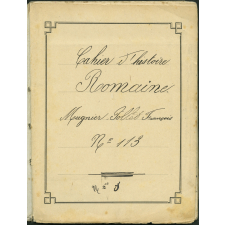 Cahier d'histoire
Romaine
Mugnier-Pollet François
N° 113
N° 3